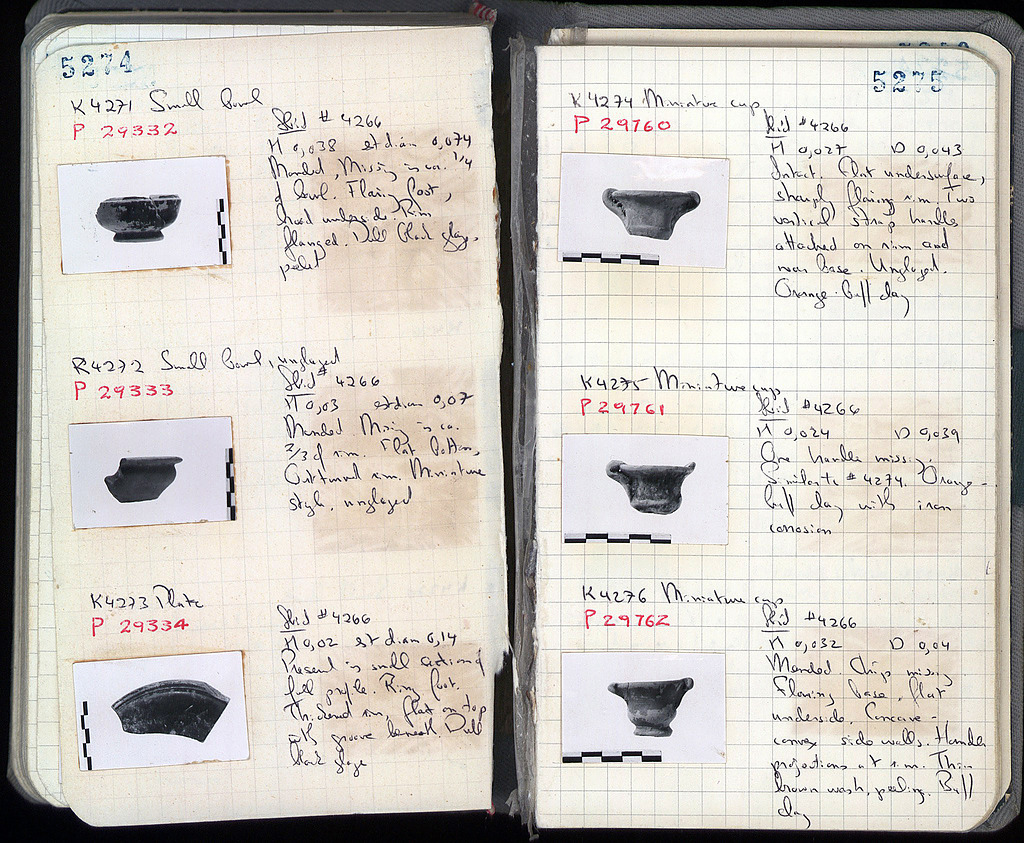 5274
K4271 Small bowl
P 29332
Ibid # 4266
H 0,038 est diam 0,074
Mended, Missing is ca. 1/4
of bowl. Flaring foot,
underside. Rim
flanged. Dull black glaze,
peeled
K4272 Small bowl, unglazed
P 29333
Ibid # 4266
H 0,03 est diam 0,07
Mended. Missing is ca.
2/3 of rim. Flat bottom,
Outturned rim. Miniature
style, unglazed
K4273 Plate
P 29334
Ibid # 4266
H 0,02 est diam 0,14
Present is small section of
full profile. Ring foot.
Thickened rim, flat on top
with groove beneath Dull
black glaze
5275
K4274 Miniature cup
P 29760
Ibid # 4266
H 0,027 D 0,043
Intact. Flat undersurface,
sharply flaring rim. Two
vertical strap handles
attached on rim and
near base. Unglazed.
Orange-buff clay
K4275 Miniature cup
P 29761
Ibid #4266
H 0,024 D 0,039
One handle missing.
Similar to # 4274. Orange-
buff clay with iron
corrosion
K4276 Miniature cup
P 29762
Ibid #4266
H 0,032 D 0,04
Mended Chip missing
Flaring base, flat
underside. Concave-
convex side walls. Handle
projections at rim. Thin
brown wash, peeling. Buff
clay